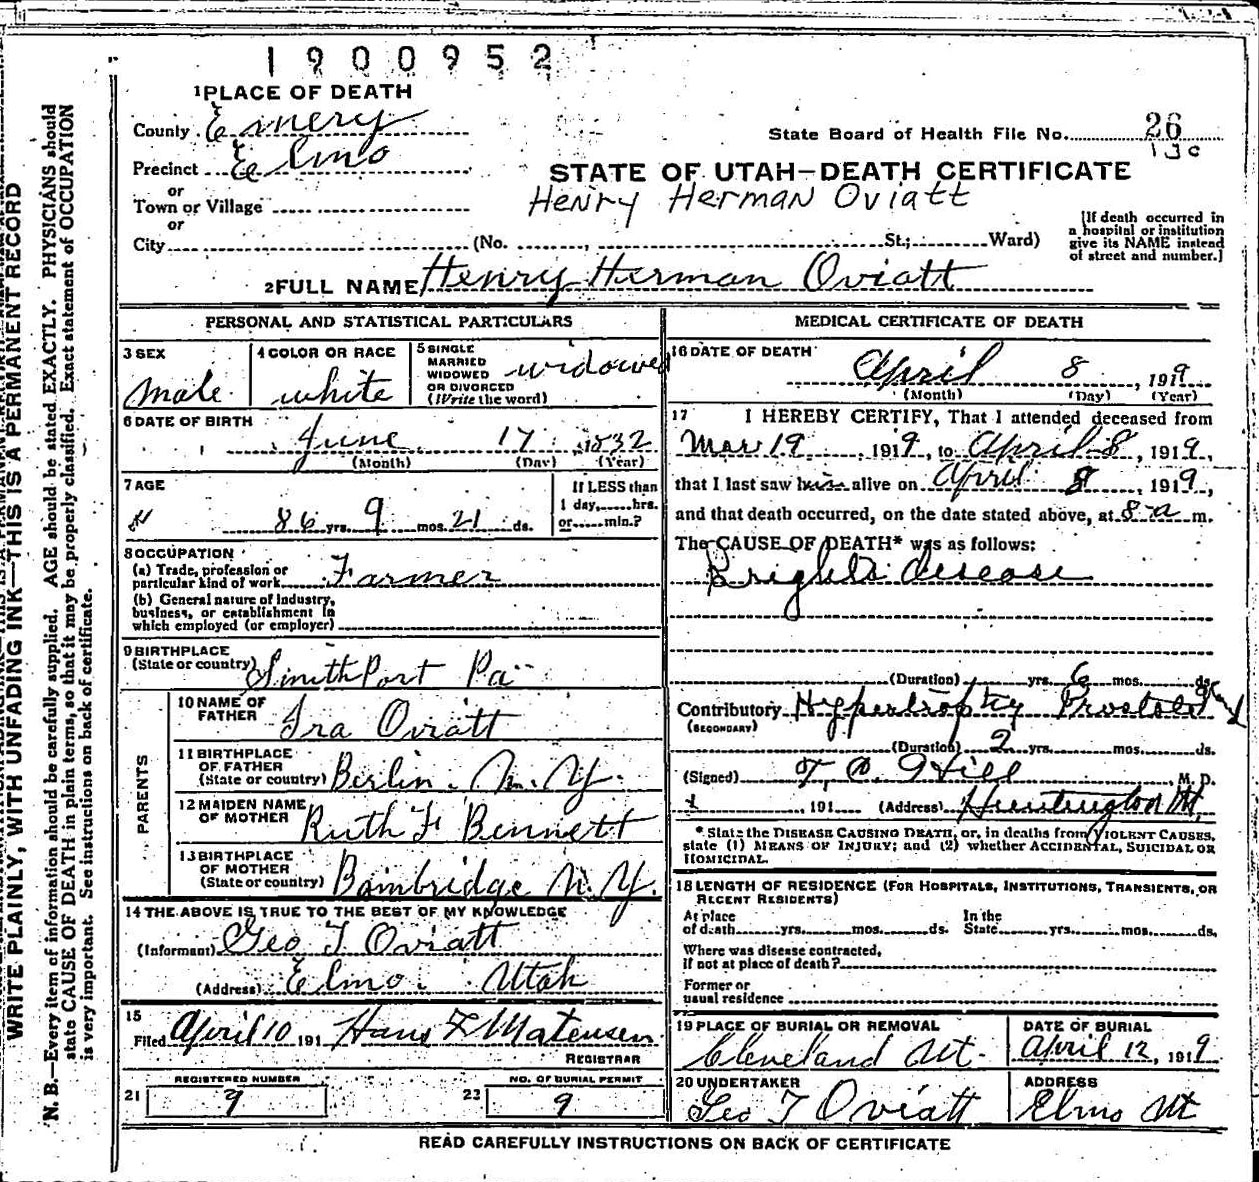 1900952
1 PLACE OF DEATH
County Emery
State Board of Health File No. 26
130
Precinct Elmo
STATE OF UTAH—DEATH CERTIFICATE
or
Town or Village
Henry Herman Oviatt
or
City (No. , St.; Ward)
[If death occurred in
a hospital or institution
give its NAME instead
of street and number.]
2 FULL NAME Henry Herman Oviatt
PERSONAL AND STATISTICAL PARTICULARS
3 SEX
male
4 COLOR OR RACE
white
5 SINGLE
MARRIED
WIDOWED
OR DIVORCED
(Write the word)
widowed
6 DATE OF BIRTH
June 17, 1832
(Month) (Day) (Year)
7 AGE
86 yrs. 9 mos. 21 ds.
If LESS than
1 day, hrs.
or min.?
8 OCCUPATION
(a) Trade, profession or
particular kind of work Farmer
(b) General nature of industry,
business, or establishment in
which employed (or employer)
9 BIRTHPLACE
(State or country) SmithPort Pa
PARENTS
10 NAME OF
FATHER Ira Oviatt
11 BIRTHPLACE
OF FATHER
(State or country) Berlin. N. Y.
12 MAIDEN NAME
OF MOTHER Ruth F Bennett
13 BIRTHPLACE
OF MOTHER
(State or country) Bambridge N. Y.
14 THE ABOVE IS TRUE TO THE BEST OF MY KNOWLEDGE
(Informant) Geo T Oviatt
(Address) Elmo. Utah
15
Filed April 10 191 Hans F Matensen
REGISTRAR
REGISTERED NUMBER
21 9
NO. OF BURIAL PERMIT
22 9
MEDICAL CERTIFICATE OF DEATH
16 DATE OF DEATH
April 8, 1919
(Month) (Day) (Year)
17 I HEREBY CERTIFY, That I attended deceased from
Mar 19 1919, to April 8, 1919,
that I last saw him alive on April 8, 1919,
and that death occurred, on the date stated above, at 8 a m.
The CAUSE OF DEATH* was as follows:
Brights disease
(Duration) yrs. 6 mos. ds.
Contributory Hypertrophy
(SECONDARY)
(Duration) 2 yrs. mos. ds.
(Signed) T. C. Hill, M. D.
191 (Address) Huntington Ut.
*State the DISEASE CAUSING DEATH, or, in deaths from VIOLENT CAUSES,
state (1) MEANS OF INJURY; and (2) whether ACCIDENTAL, SUICIDAL OR
HOMICIDAL.
18 LENGTH OF RESIDENCE (FOR HOSPITALS, INSTITUTIONS, TRANSIENTS, OR
RECENT RESIDENTS)
At place In the
of death yrs. mos. ds. State yrs. mos. ds.
Where was disease contracted,
if not at place of death?
Former or
usual residence
19 PLACE OF BURIAL OR REMOVAL
Cleveland Ut.
DATE OF BURIAL
April 12, 1919
20 UNDERTAKER
Geo T Oviatt
ADDRESS
Elmo Ut
READ CAREFULLY INSTRUCTIONS ON BACK OF CERTIFICATE
WRITE PLAINLY, WITH UNFADING INK—THIS IS A PERMANENT RECORD
N. B.—Every item of information should be carefully supplied. AGE should be stated EXACTLY. PHYSICIANS should
state CAUSE OF DEATH in plain terms, so that it may be properly classified. Exact statement of OCCUPATION
is very important. See instructions on back of certificate.